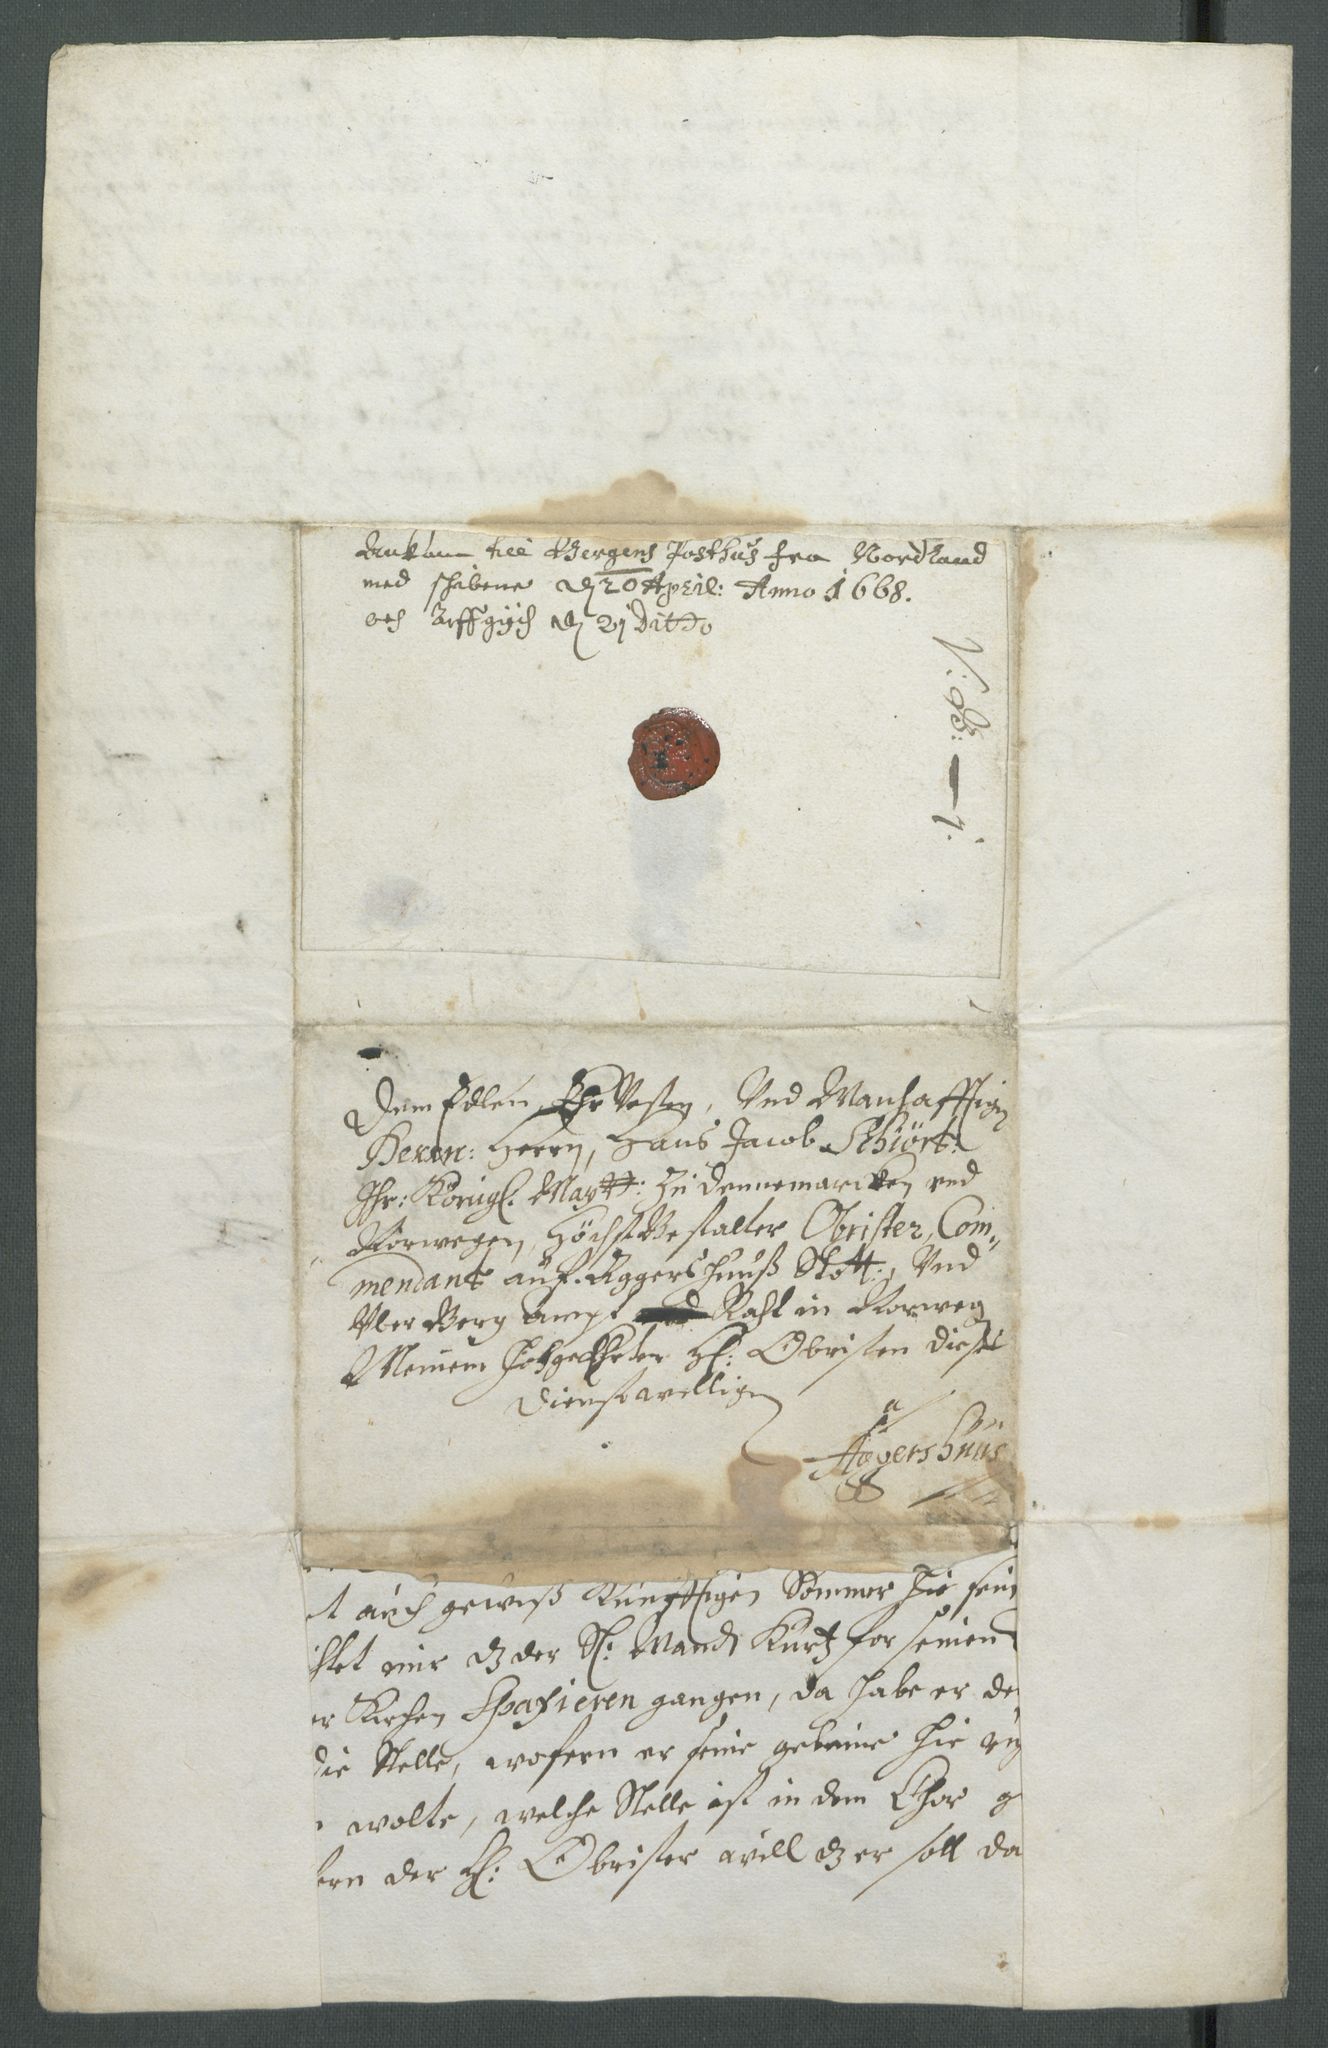 Ankom till Bergens Posthus fra Nordland
med schibene dj 20 April: Anno 1668.
och affgijch dj 2j Ditto
N: 68: — j.
Dem Edlen, Ehr Vesten, Vnd Manhafftigen
Herrn: Herrn, Hans Jacob Schiört:
Ihr: Königl. Maytt: Zu Dennemarcken vnd
Norwegen, HöchstBestalter Obrister, Com„
mendant auf Aggershuuß Slott:, Vnd
Vber Berg ampt Raht in Norweg
Meinem hochgeEhrten H: Obristen dieses
dienstwillig
a
Aggershuus
t auch gewiß Künfftigen Sommer hie sein
htet mir dz der Sl: Mandt Kurtz for seinen
er Kirchen Spaxieren gangen, da habe er de
die Stelle, wofern er seine gebeine hie
wolte, welche Stelle ist in dem Chor g
fern der H: Obrister will dz er soll da